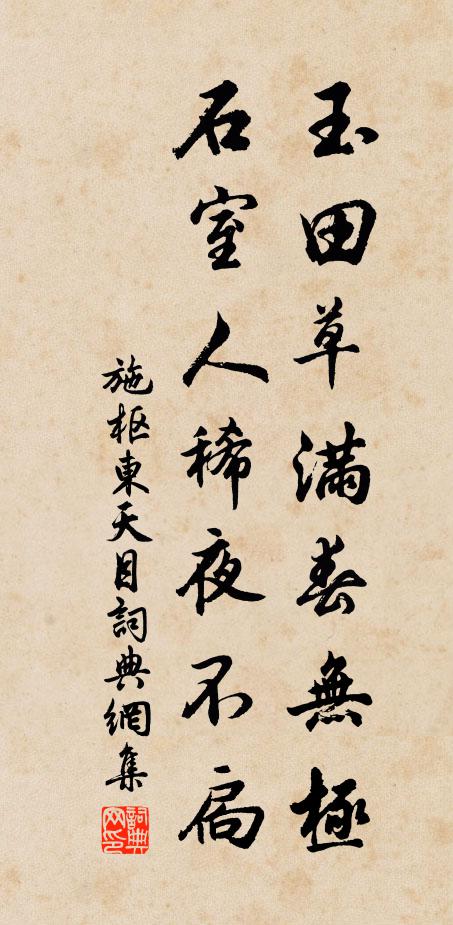 玉田草滿春無極
石室人稀夜不扃
施枢東天目詞典網集
詞典网印